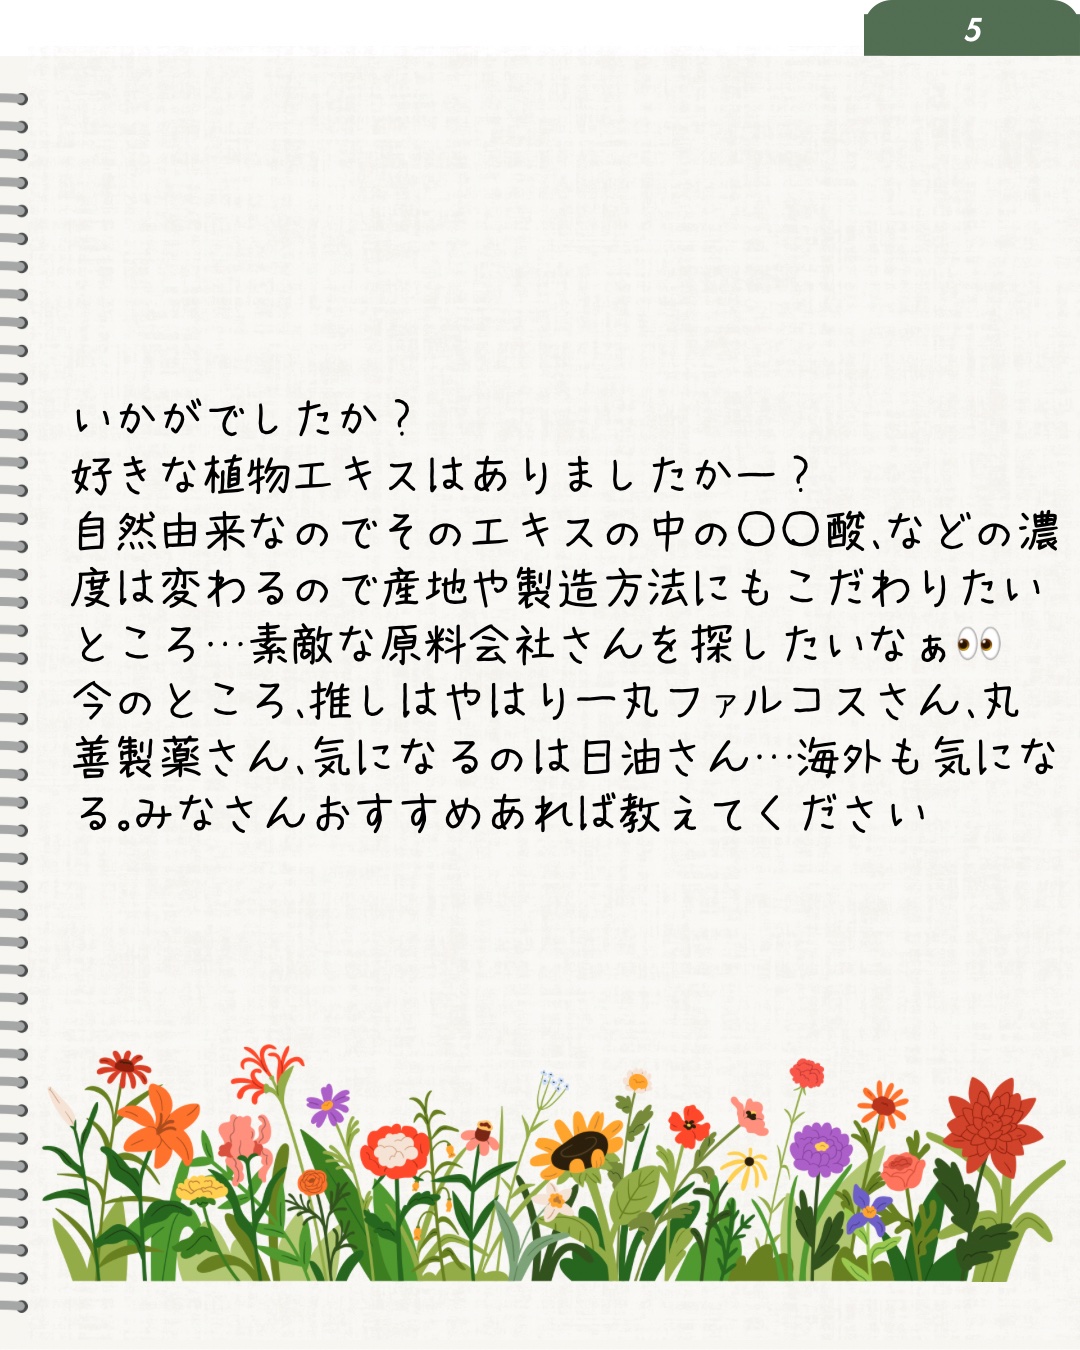 5
いかがでしたか？
好きな植物エキスはありましたかー？
自然由来なのでそのエキスの中の〇〇酸、などの濃
度は変わるので産地や製造方法にもこだわりたい
ところ…素敵な原料会社さんを探したいなぁ👀
今のところ、推しはやはり一丸ファルコスさん、丸
善製薬さん、気になるのは日油さん…海外も気にな
る。みなさんおすすめあれば教えてください